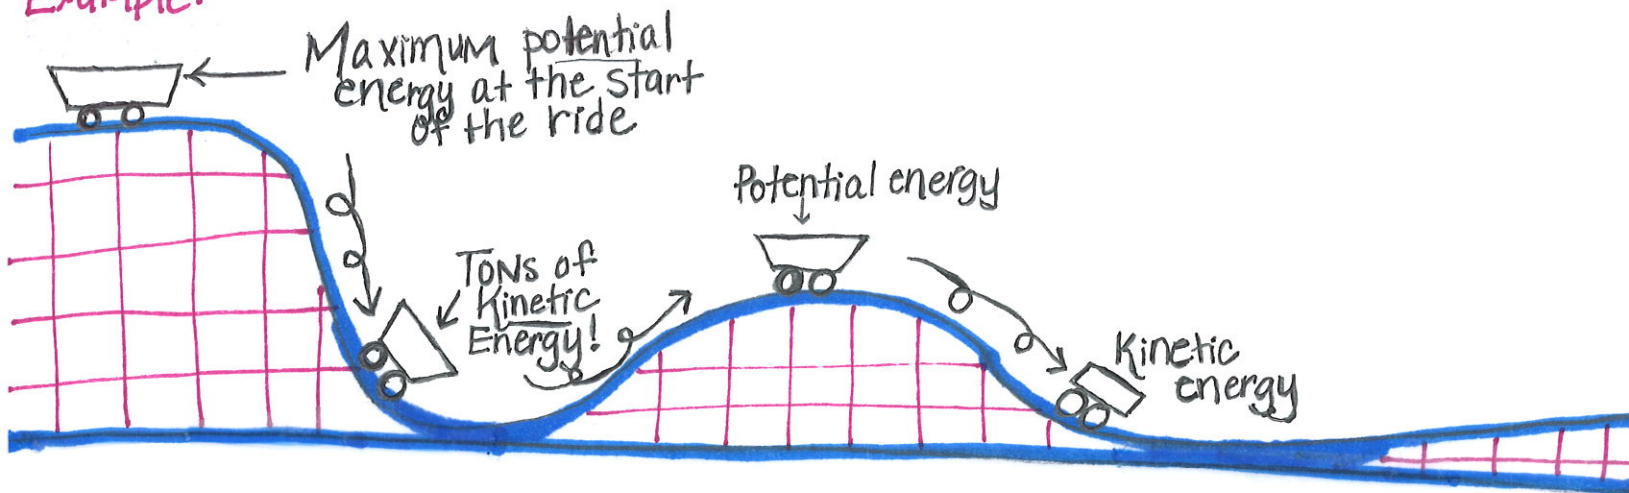 Example:
Maximum potential
energy at the start
of the ride
Potential energy
TONS of
Kinetic
Energy!
Kinetic
energy